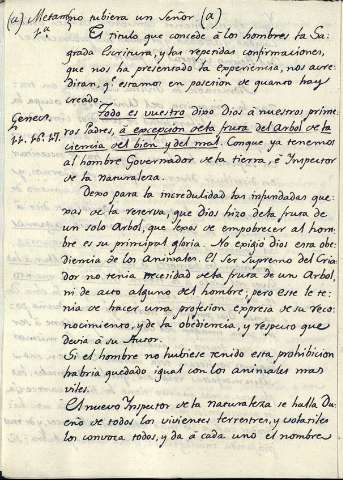 (a) Metamfo tubiera un Señor (a)
1.a El titulo que concede à los hombres la Sa-
grada Escritura, y las repetidas confirmaciones,
que nos ha presentado la experiencia, nos acre-
ditan, q.e estamos en posesion de quanto hay
creado.
Genes.
Todo es vuestro dixo Dios à nuestros prime-
ros Padres, à excepcion de la fruta del Arbol de la
ciencia del bien y del mal. Conque ya tenemos
al hombre Governador de la tierra, è Inspector
de la naturaleza.
Dexo para la incredulidad las infundadas que-
xas de la reserva, que Dios hizo de la fruta de
un solo Arbol, que lexos de empobrecer al hom-
bre es su principal gloria. No exigiò Dios esta obe-
diencia de los Animales. El Ser Supremo del Cria-
dor no tenia necesidad de la fruta de un Arbol,
ni de acto alguno del hombre; pero ese le te-
nia de hacer una profesion expresa de su reco-
nocimiento, y de la obediencia, y respeto que
devia à su Autor.
Si el hombre no hubiese tenido esta prohibicion
habria quedado igual con los animales mas
viles.
El nuevo Inspector de la naturaleza se halla Du-
eño de todos los vivientes terrestres, y volatiles
los convoca todos, y da à cada uno el nombre